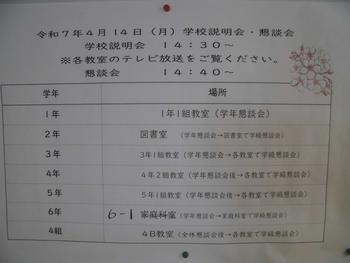 令和7年4月14日（月）学校説明会・懇談会
学校説明会　14：30～
※各教室のテレビ放送をご覧ください。
懇談会　14：40～
学年　場所
1年　1年1組教室（学年懇談会）
2年　図書室（学年懇談会→図書室で学級懇談会）
3年　3年1組教室（学年懇談会後→各教室で学級懇談会）
4年　4年2組教室（学年懇談会後→各教室で学級懇談会）
5年　5年1組教室（学年懇談会後→各教室で学級懇談会）
6年　6-1　家庭科室（学年懇談会後→家庭科室で学級懇談会）
4組　4B教室（全体懇談会後→各教室で学級懇談会）